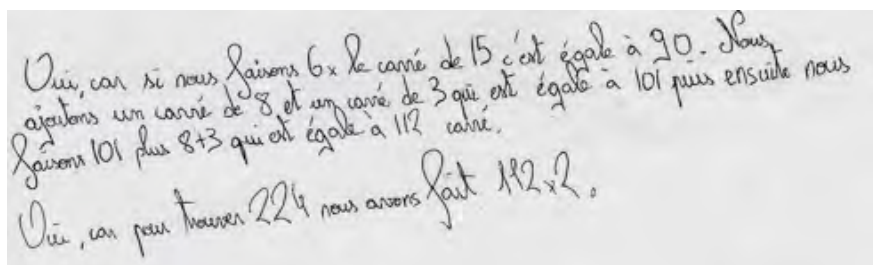 Oui, car si nous faisons 6x le carré de 15 c'est égale à 90. Nous
ajoutons un carré de 8 et un carré de 3 qui est égale à 101 puis ensuite nous
faisons 101 plus 8+3 qui est égale à 112 carré.
Oui, car pour trouver 224 nous avons fait 112x2.